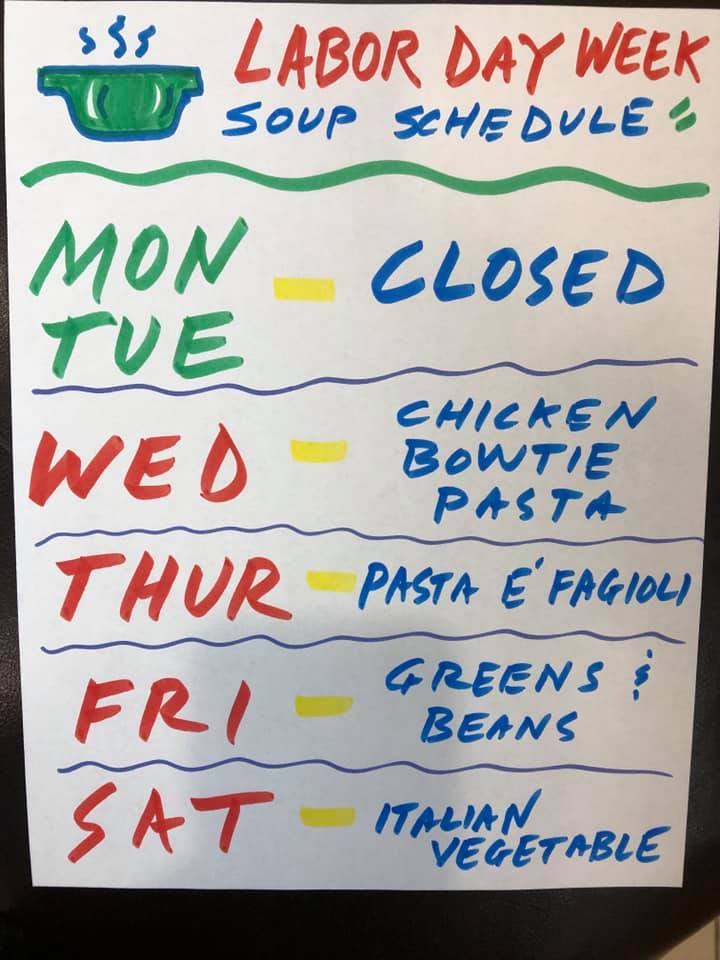 LABOR DAY WEEK
SOUP SCHEDULE
MON
TUE - CLOSED
WED - CHICKEN
BOWTIE
PASTA
THUR - PASTA E' FAGIOLI
FRI - GREENS &
BEANS
SAT - ITALIAN
VEGETABLE